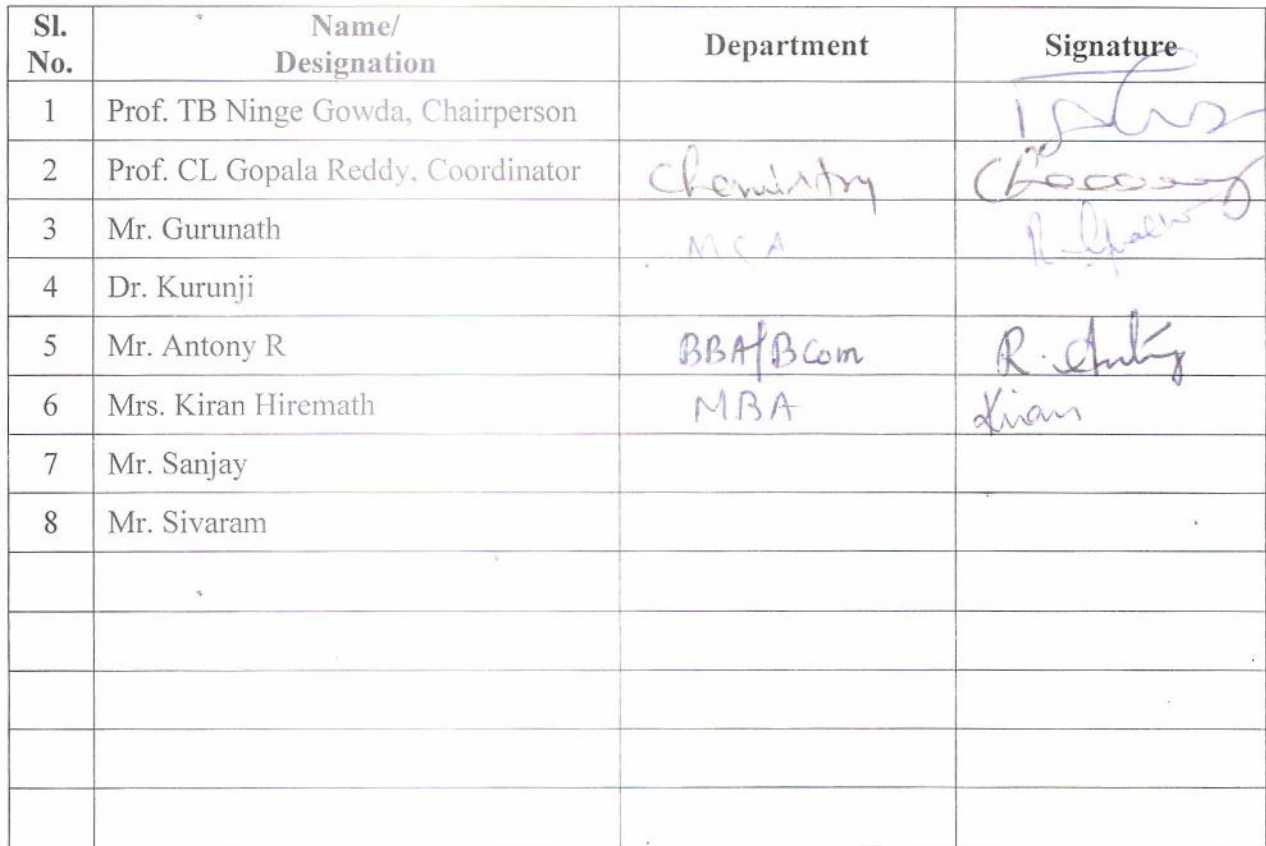 Sl. No. Name/ Designation Department Signature
1 Prof. TB Ninge Gowda, Chairperson
2 Prof. CL Gopala Reddy, Coordinator Chemistry
3 Mr. Gurunath MCA
4 Dr. Kurunji
5 Mr. Antony R BBA/BCom R. Antony
6 Mrs. Kiran Hiremath MBA Kiran
7 Mr. Sanjay
8 Mr. Sivaram